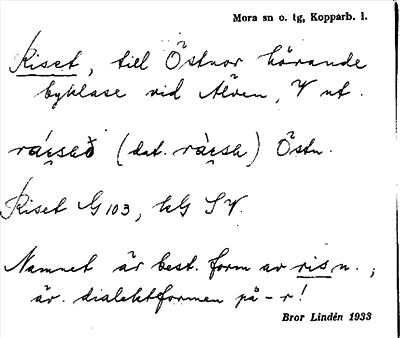 Mora sn o. tg, Kopparb. l.
Riset, till Östnor hörande
byklase vid Älven, V ut.
(dat.) Östn.
Riset G 103, kG SV.
Namnet är best. form av ris n. ;
äv. dialektformen på -r!
Bror Lindén 1933